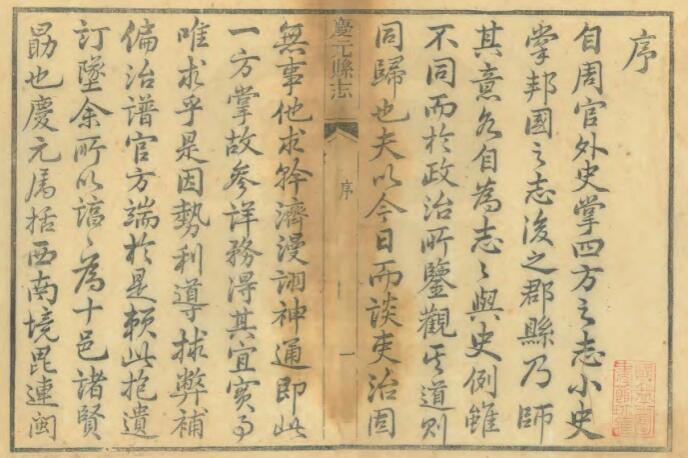 序
自周官外史掌四方之志小史
掌邦國之志後之郡縣乃師
其意各自為志〻與史例雖
不同而於政治所鑒觀其道則
同歸也夫以今日而談吏治固
慶元縣志
序
一
無事他求幹濟漫詡神通即此
一方掌故參詳務得其宜實事
唯求乎是因勢利導捄弊補
偏治譜官方端於是賴此抱遺
訂墜余所以諄〻為十邑諸賢
勗也慶元属括西南境毘連閩